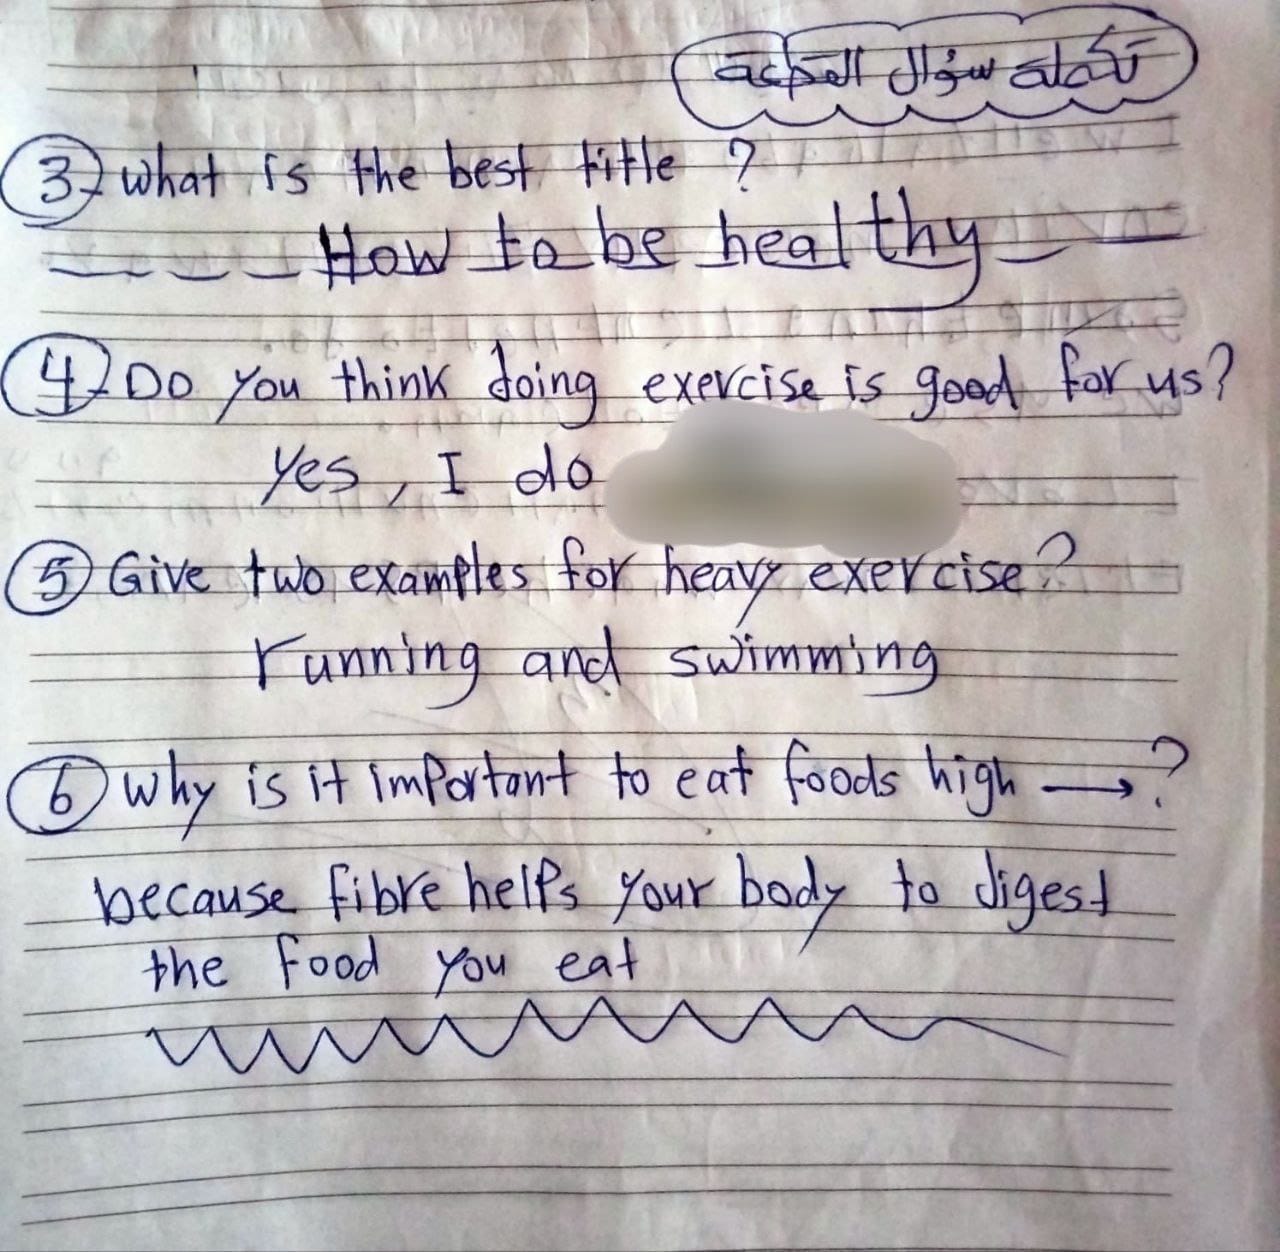 تكملة سؤال القطعة
3) What is the best title ?
How to be healthy
4) Do you think doing exercise is good for us?
Yes, I do
5) Give two examples for heavy exercise?
running and swimming
6) Why is it important to eat foods high → ?
because fibre helps your body to digest
the food you eat